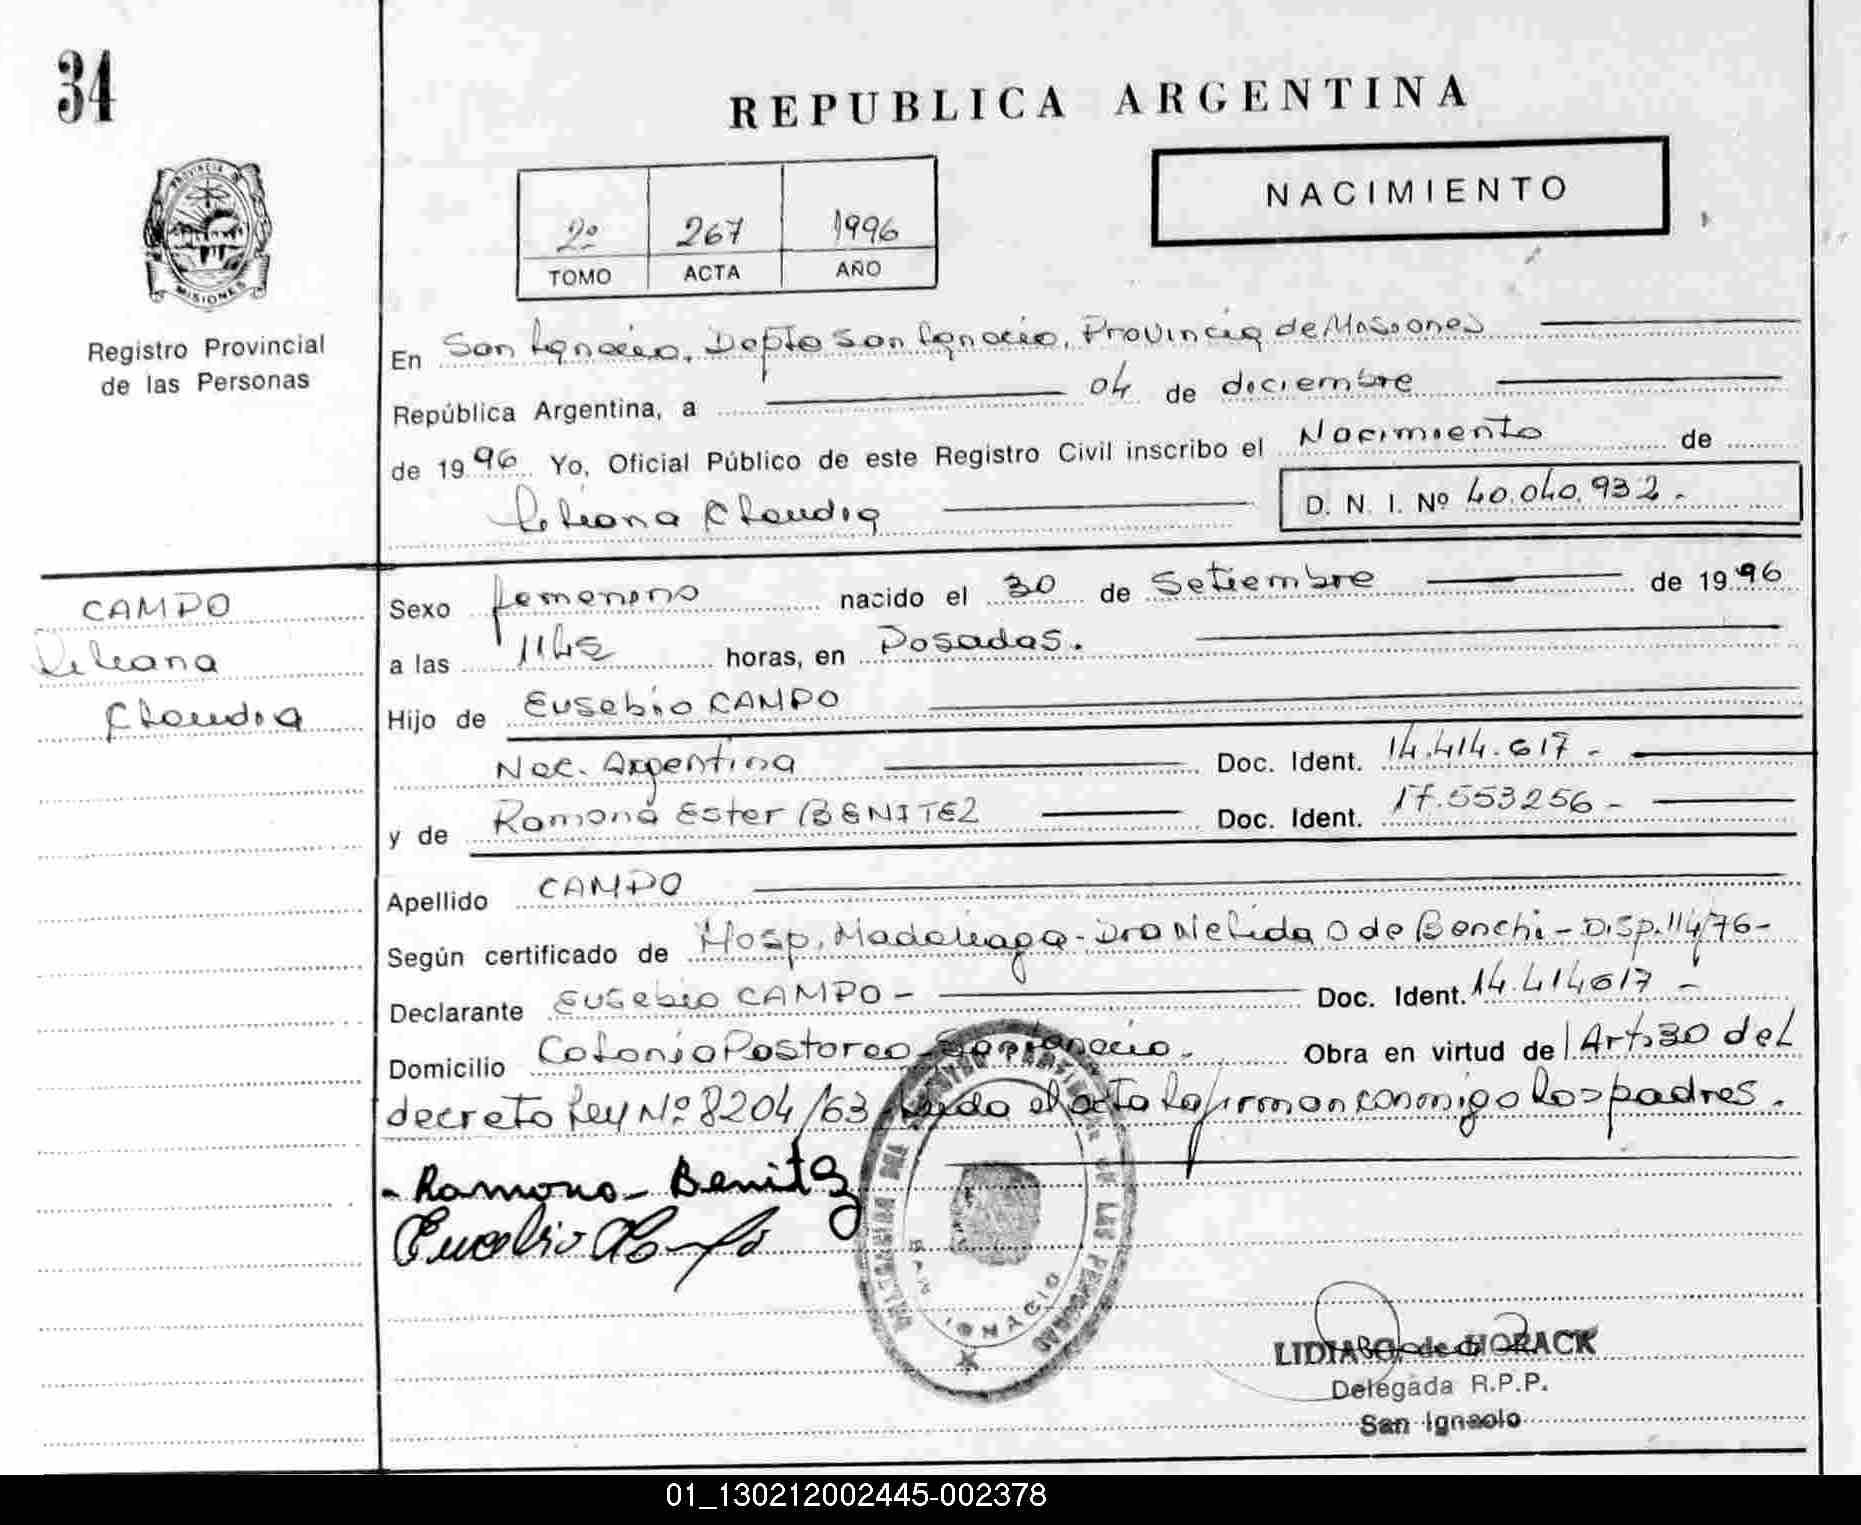 34
REPUBLICA ARGENTINA
NACIMIENTO
2º 267 1996
TOMO ACTA AÑO
PROVINCIA DE
MISIONES
Registro Provincial
de las Personas
En San Ignacio, Depto San Ignacio, Provincia de Misiones
República Argentina, a 04 de diciembre
de 1996 Yo, Oficial Público de este Registro Civil inscribo el Nacimiento de
Liliana Claudia D. N. I. Nº 40.040.932.-
CAMPO
Liliana
Claudia
Sexo femenino nacido el 30 de Setiembre de 1996
a las 11hs horas, en Posadas.
Hijo de Eusebio CAMPO
Nac. Argentina Doc. Ident. 14.414.617-
y de Ramona Ester BENITEZ Doc. Ident. 17.553256-
Apellido CAMPO
Según certificado de Hosp. Madariaga-Dra Nelida O de Bonchi-Disp.114/76-
Declarante Eusebio CAMPO- Doc. Ident. 14.414617-
Domicilio Colonia Pastoreo-San Ignacio. Obra en virtud del Art.30 del
decreto Ley Nº 8204/63 Leido el acta la firman conmigo los padres.
-Ramona-Benitez
Eusebio Campo
REGISTRO PROVINCIAL DE LAS PERSONAS
SAN IGNACIO
LIDIA de HORACK
Delegada R.P.P.
San Ignacio
01_130212002445-002378